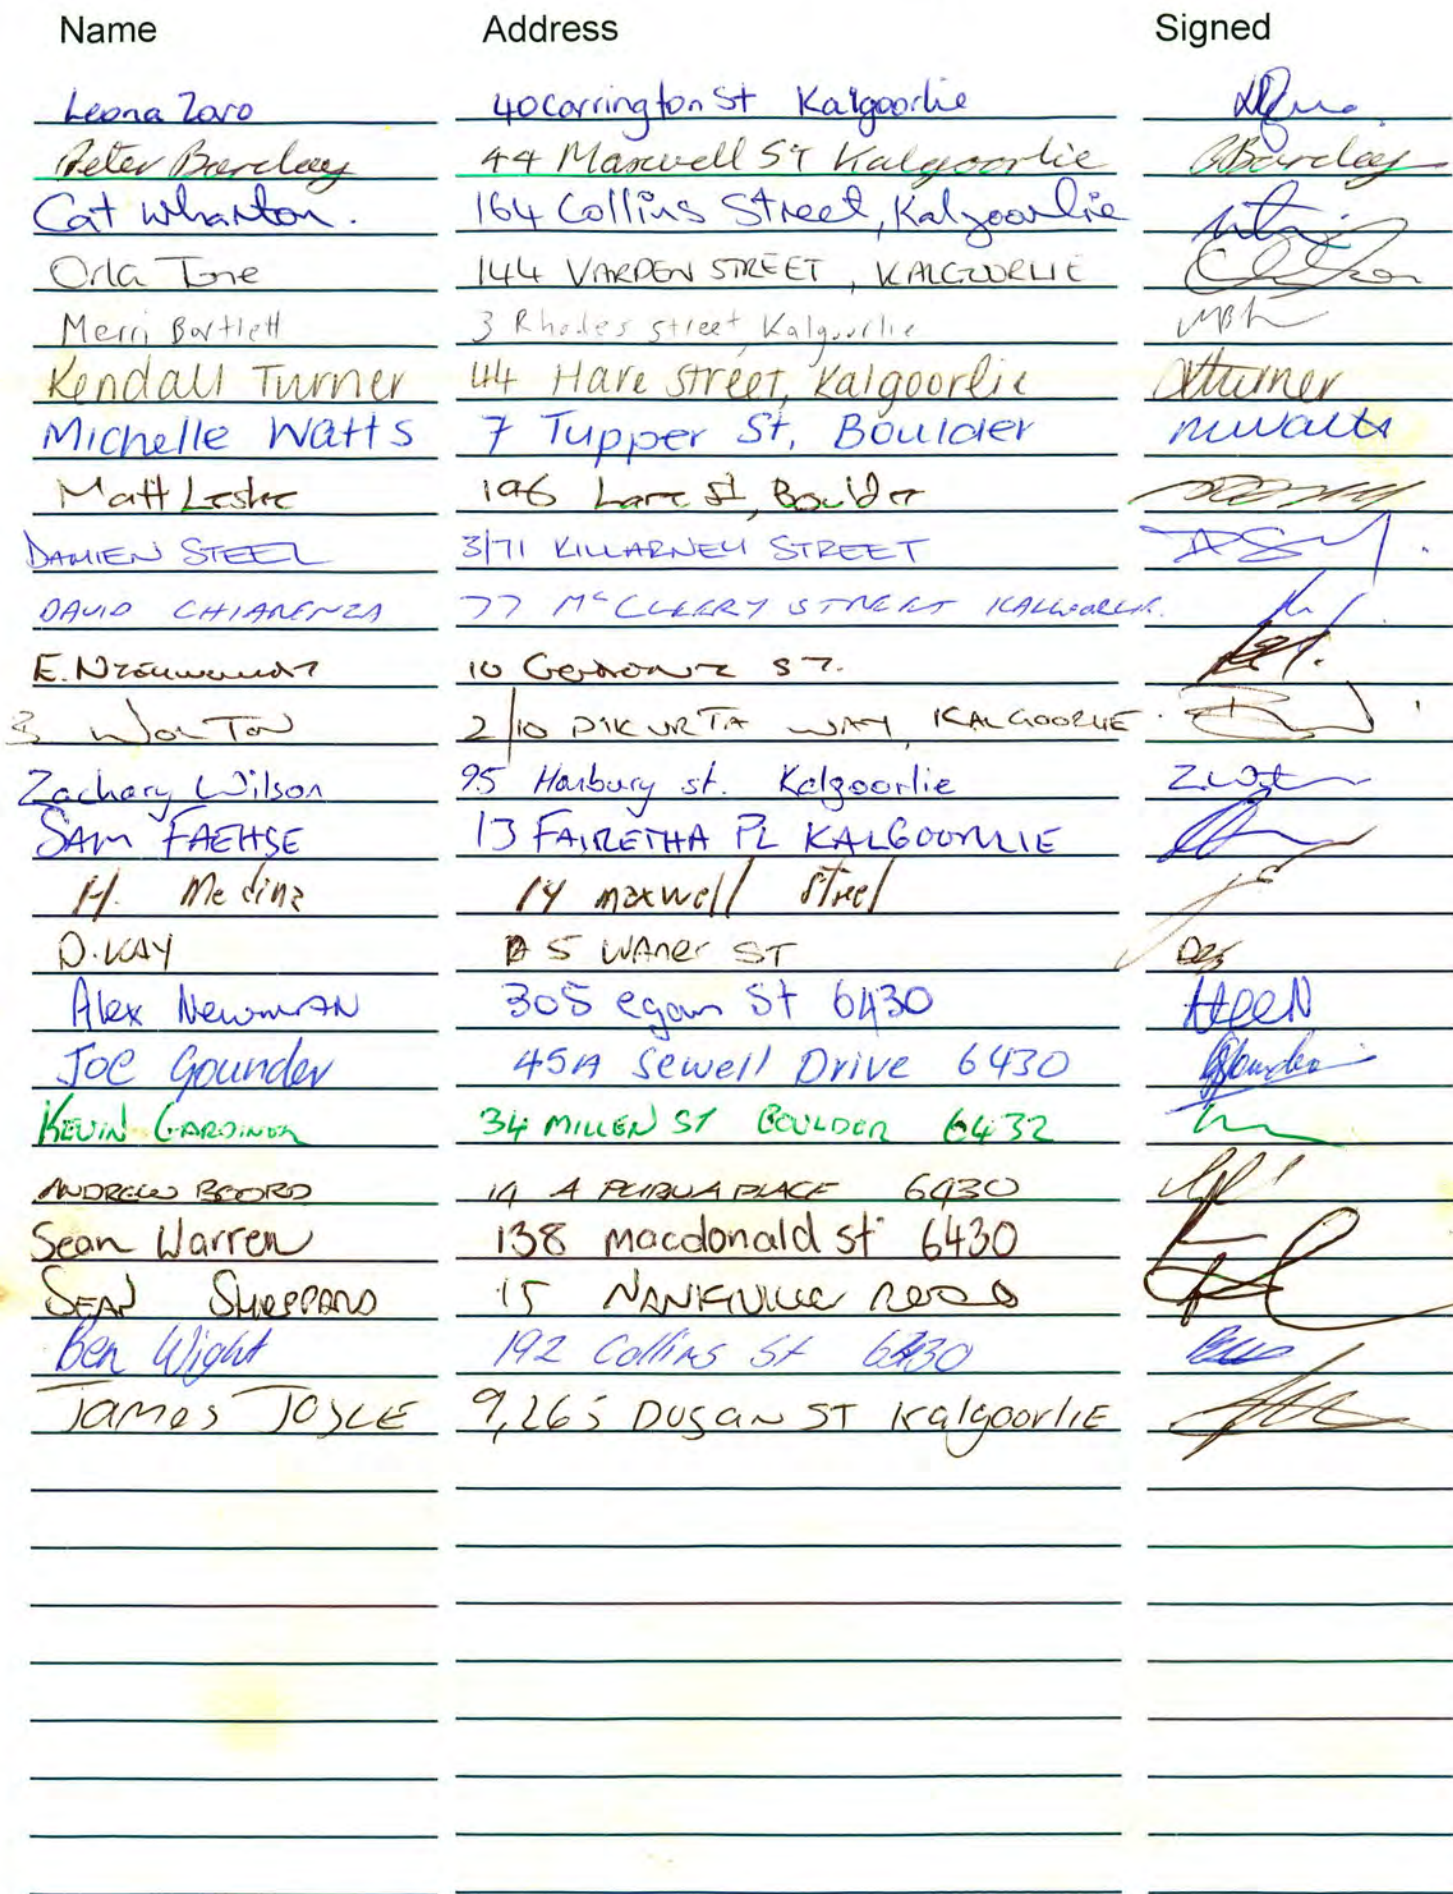 Name Address Signed
Leona Zaro 40 Carrington St Kalgoorlie
Peter Barclay 44 Maxwell St Kalgoorlie Barclay
Cat Wharton. 164 Collins Street, Kalgoorlie
Orla Tone 144 VARDEN STREET, KALGOORLIE
Merri Bartlett 3 Rhodes street, Kalgoorlie
Kendall Turner 44 Hare street, Kalgoorlie Kturner
Michelle Watts 7 Tupper St, Boulder mwatts
Matt Leslie 196 Lane St, Boulder
DAMIEN STEEL 3/71 KILLARNEY STREET
DAVID CHIARENZA 77 McCLEERY STREET KALGOORLIE.
E. 10 ST.
WOLTON 2/10 DIKURTA WAY, KALGOORLIE.
Zachary Wilson 95 Hanbury st. Kalgoorlie
SAM FAEHSE 13 FAIRETHA PL KALGOORLIE
H. Medina 14 maxwell street
D. KAY 5 ST
Alex NewmAN 305 egan St 6430
Joe Gounder 45A Sewell Drive 6430 Gounder
KEVIN GARDINER 34 MILLEN ST BOULDER 6432
ANDREW PLACE 6430
Sean Warren 138 macdonald st 6430
SEAN SHEPPARD 15 NANKIVILLE ROAD
Ben Wight 192 Collins St 6430
James JOYCE 9,265 DUGAN ST KalgoorlIE